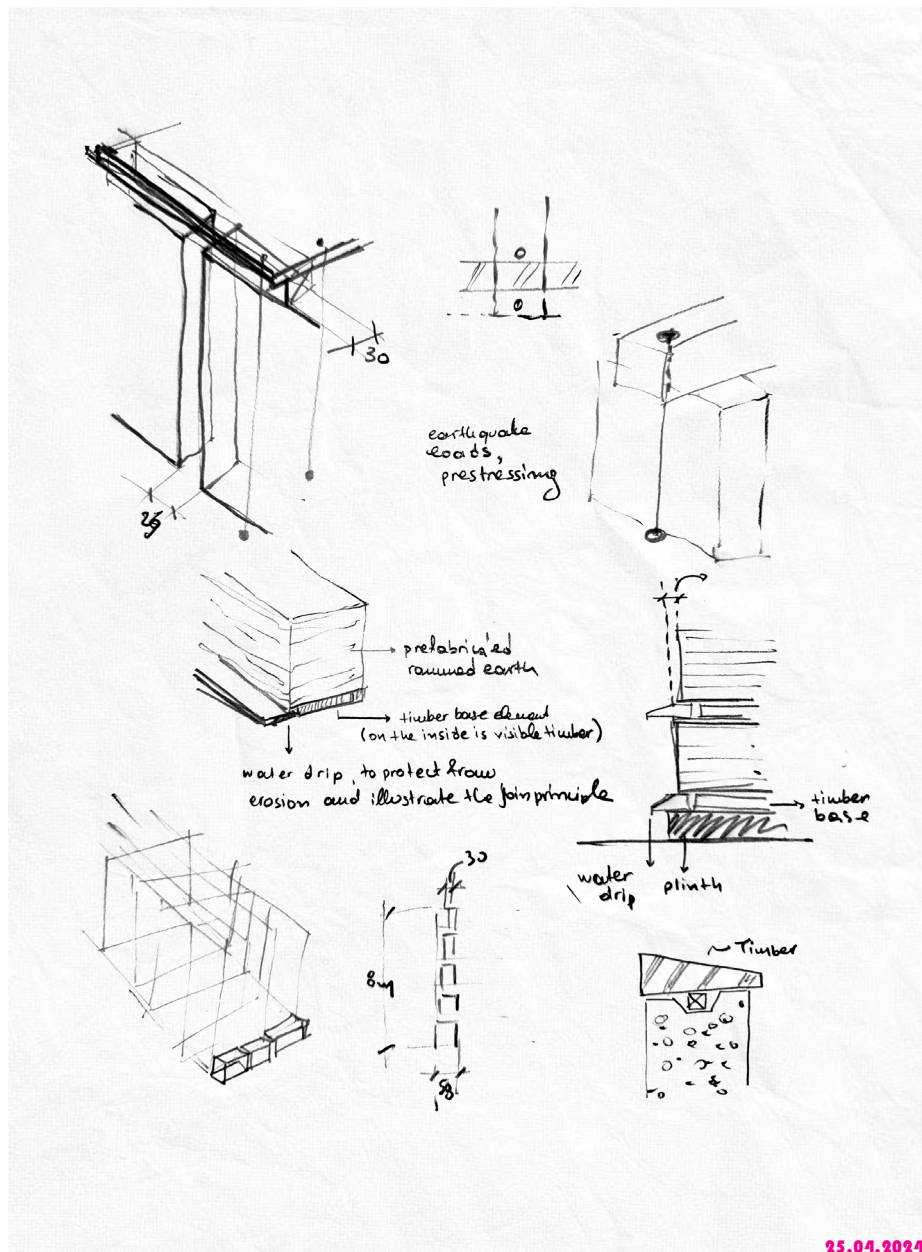 30
earthquake
loads,
prestressing
prefabricated
rammed earth
timber base element
(on the inside is visible timber)
water drip, to protect from
erosion and illustrate the join principle
timber
base
water
drip
plinth
30
8m
Timber
25.04.2024